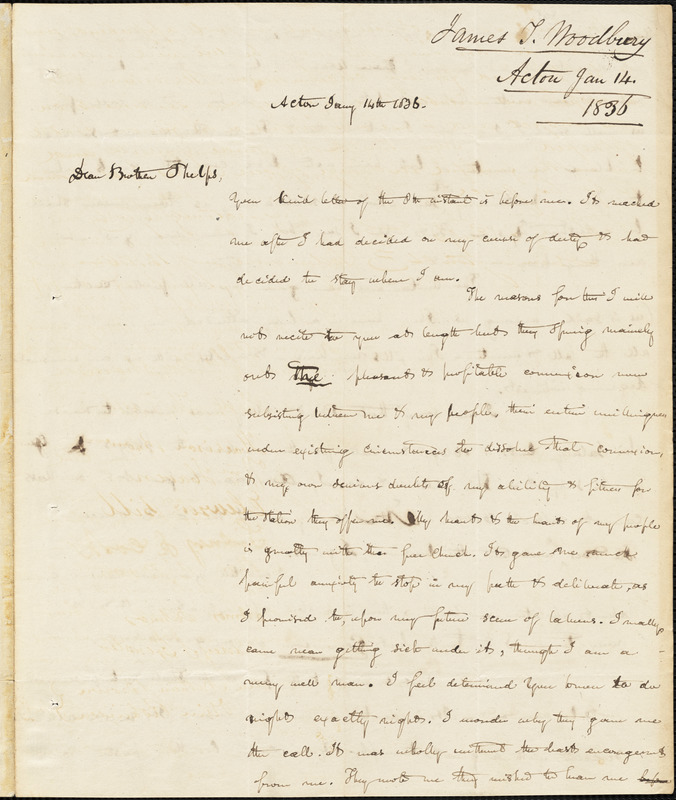 James T. Woodbury
Acton Jan 14.
1836
Acton Jany 14th 1836.
Dear Brother Phelps,
Your kind letter of the 8th instant is before me. It reached
me after I had decided on my course of duty & had
decided to stay where I am.
The reasons for this I will
not recite to you at length but they spring mainly
out the pleasant & profitable connexion now
subsisting between me & my people, their entire unwillingness
under existing circumstances to dissolve that connexion,
& my own serious doubts of my ability & fitness for
the station they offer me. My heart & the heart of my people
is greatly with the free church. It gave me much
painful anxiety to stop in my path & deliberate, as
I promised to, upon my future scene of labours. I really
came near getting sick under it, though I am a
very well man. I feel determined you know to do
right exactly right. I wonder why they gave me
the call. It was wholly without the least encouragement
from me. They wrote me they wished to hear me